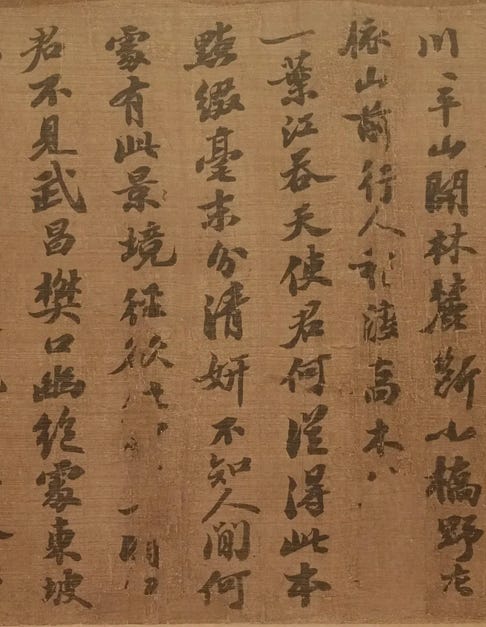 川平山開林麓斷小橋野店
依山前行人稍渡高木
一葉江吞天使君何從得此本
點綴毫末分清妍不知人間何
處有此景境徑欲
君不見武昌樊口幽絕處東坡